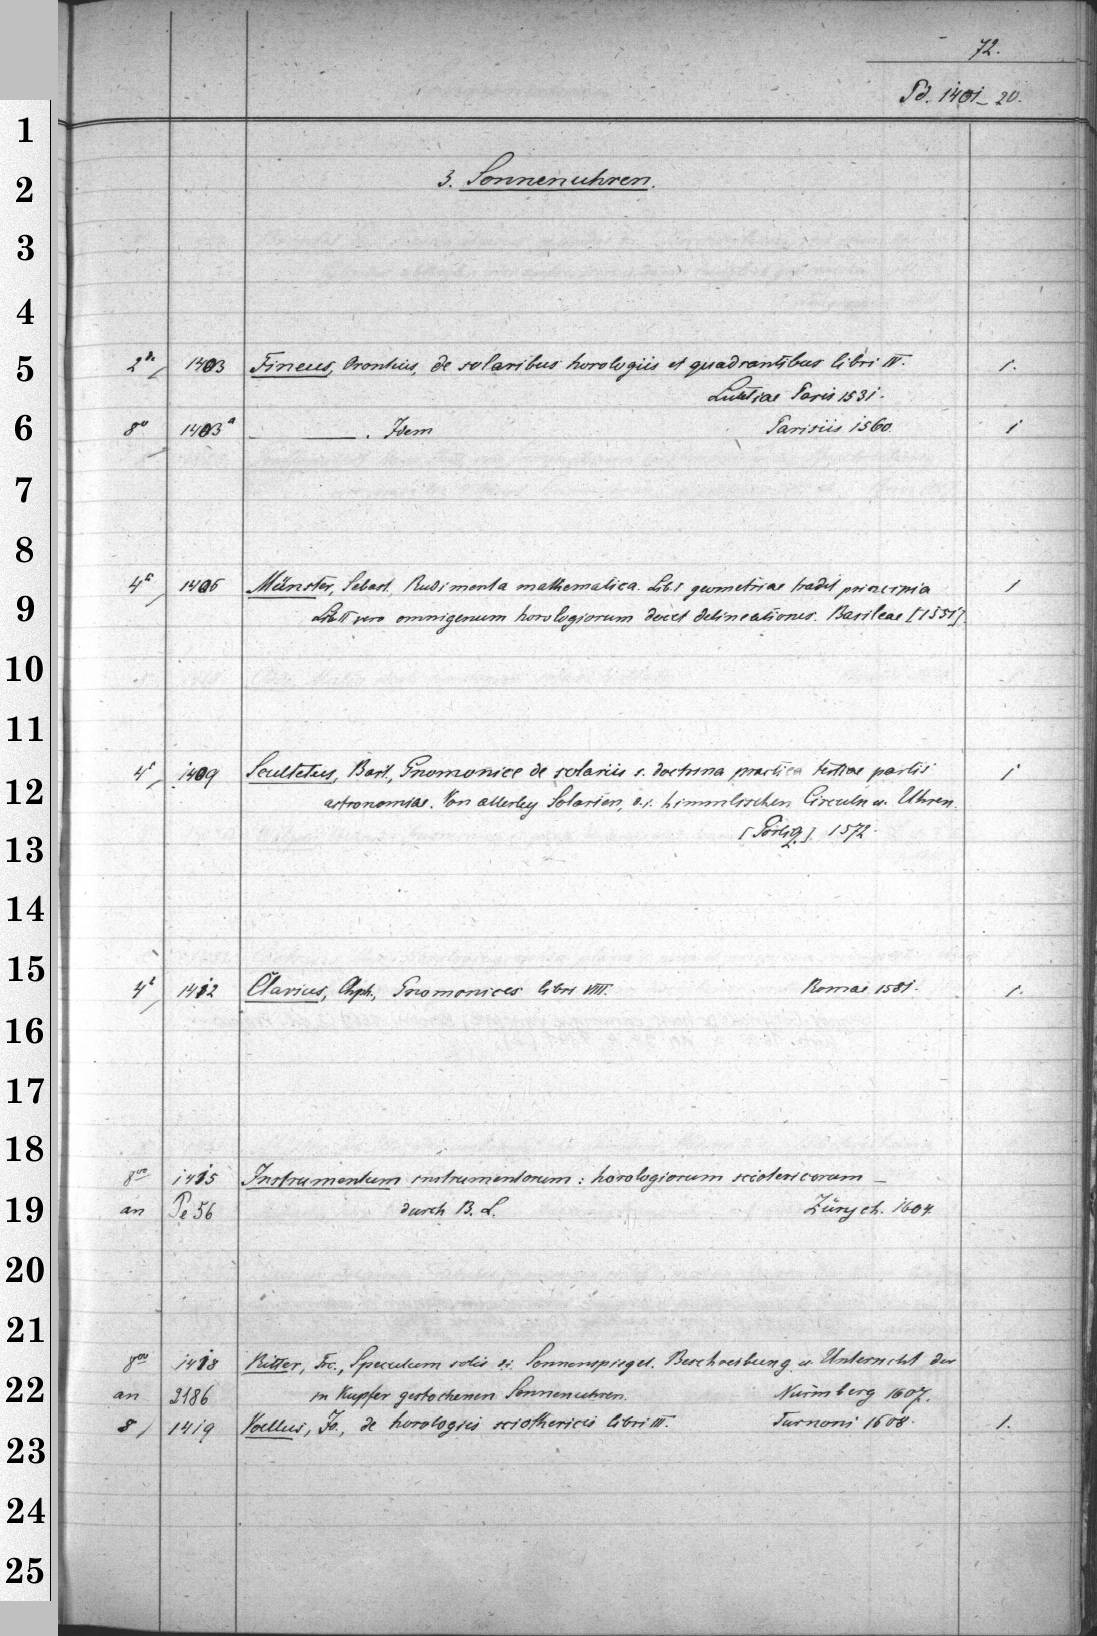 72.
Pd. 1401–20.
1
2
3. Sonnenuhren.
3
4
5
2° 1403 Fineus, Orontius, de solaribus horologiis et quadrantibus libri IV. 1.
Lutetiae Paris 1531.
6
8° 1403a ———. Idem Parisiis 1560. 1
7
8
4° 1406 Münster, Sebast. Rudimenta mathematica. Lib. I geometriae tradit principia 1
9
Lib II vero omnigenum horologiorum docet delineationes. Basileae [1551].
10
11
4° 1409 Scultetus, Bart., Gnomonice de solariis s. doctrina practica tertiae partis 1
12
astronomiae. Von allerley Solarien, d. i. himmlischen Circuln u. Uhren.
[Görlitz] 1572.
13
14
15
4° 1412 Clavius, Chph., Gnomonices libri VIII. Romae 1581. 1.
16
17
18
8vo 1415 Instrumentum instrumentorum : horologiorum sciotericorum —
19
an Pe 56 durch B. L. Zürych. 1604.
20
21
8vo 1418 Ritter, Frc., Speculum solis d. i. Sonnenspiegel. Beschreibung u. Unterricht der
22
an 2186 in Kupfer gestochenen Sonnenuhren. Nürnberg 1607.
8 1419 Voellus, Jo., de horologiis sciothericis libri III. Turnoni 1608. 1.
23
24
25